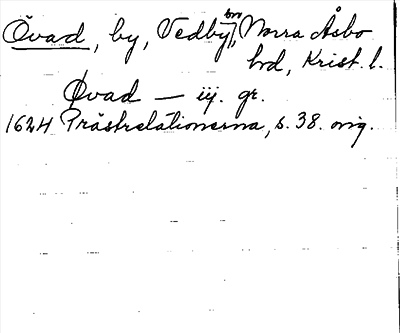 Övad, by, Vedby sn, Norra Åsbo
hd, Krist. l.
Øvad — iij. gr.
1624 Prästrelationerna, s. 38. orig.